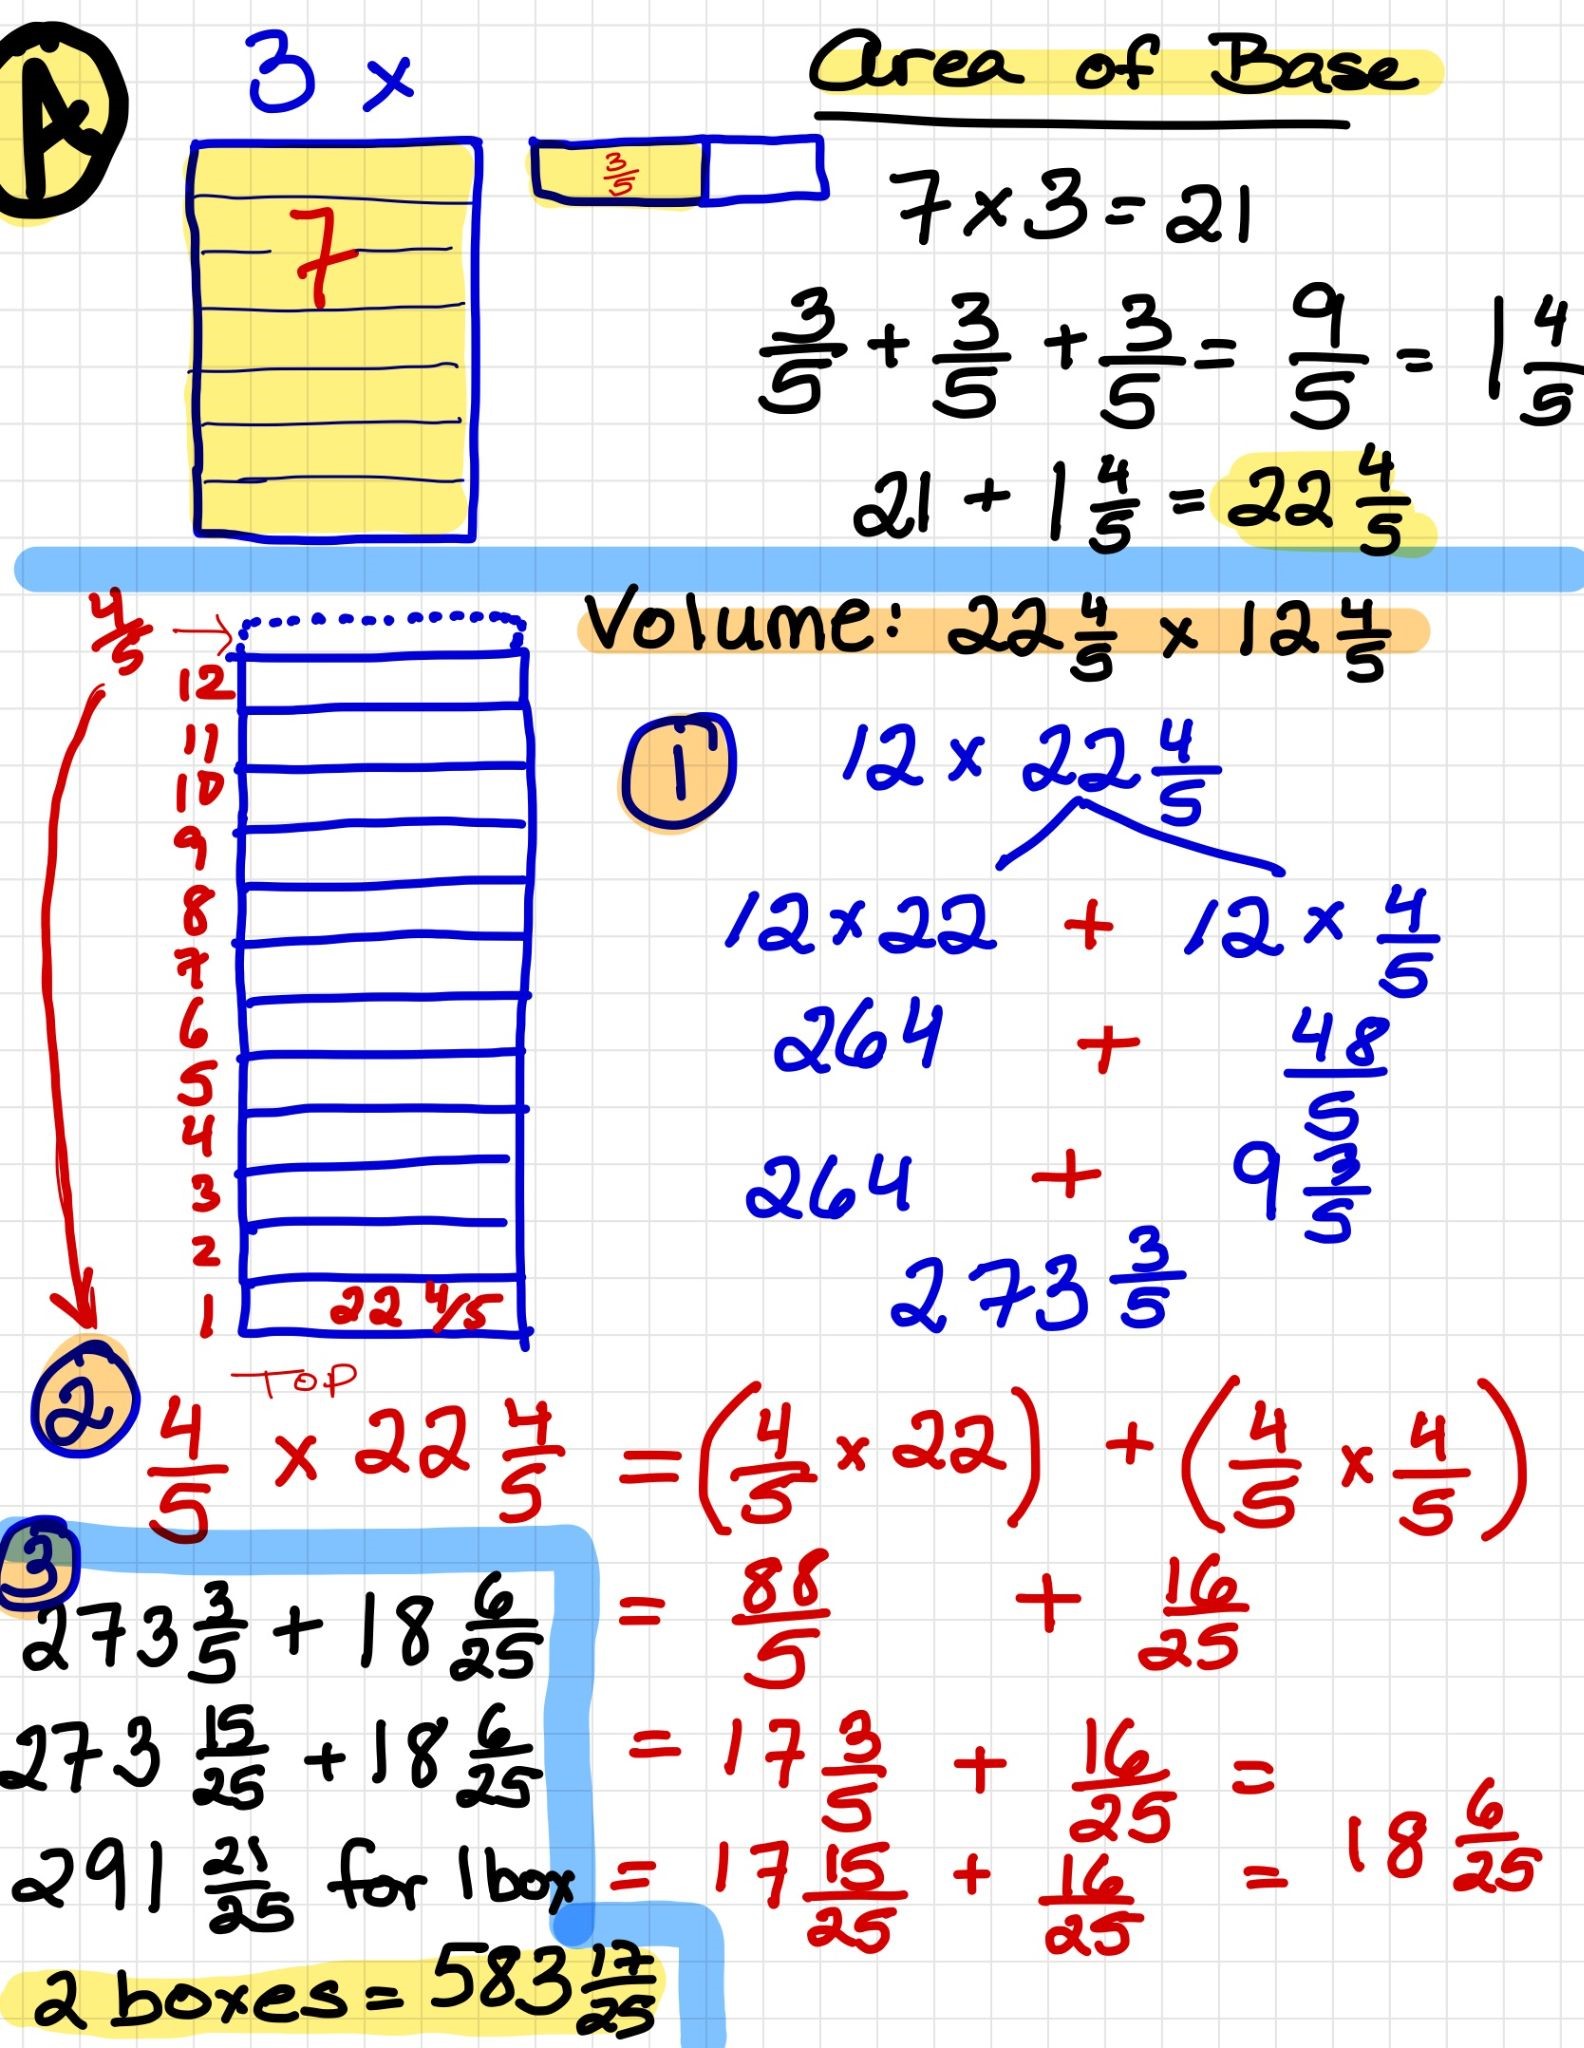 A
3 x
Area of Base
7
3/5
7 x 3 = 21
3/5 + 3/5 + 3/5 = 9/5 = 1 4/5
21 + 1 4/5 = 22 4/5
4/5 →
12
11
10
9
8
7
6
5
4
3
2
1
22 4/5
TOP
Volume: 22 4/5 x 12 4/5
1
12 x 22 4/5
12 x 22 + 12 x 4/5
264 + 48/5
264 + 9 3/5
273 3/5
2
4/5 x 22 4/5 = (4/5 x 22) + (4/5 x 4/5)
= 88/5 + 16/25
= 17 3/5 + 16/25 =
= 17 15/25 + 16/25 = 18 6/25
3
273 3/5 + 18 6/25
273 15/25 + 18 6/25
291 21/25 for 1 box
2 boxes = 583 17/25